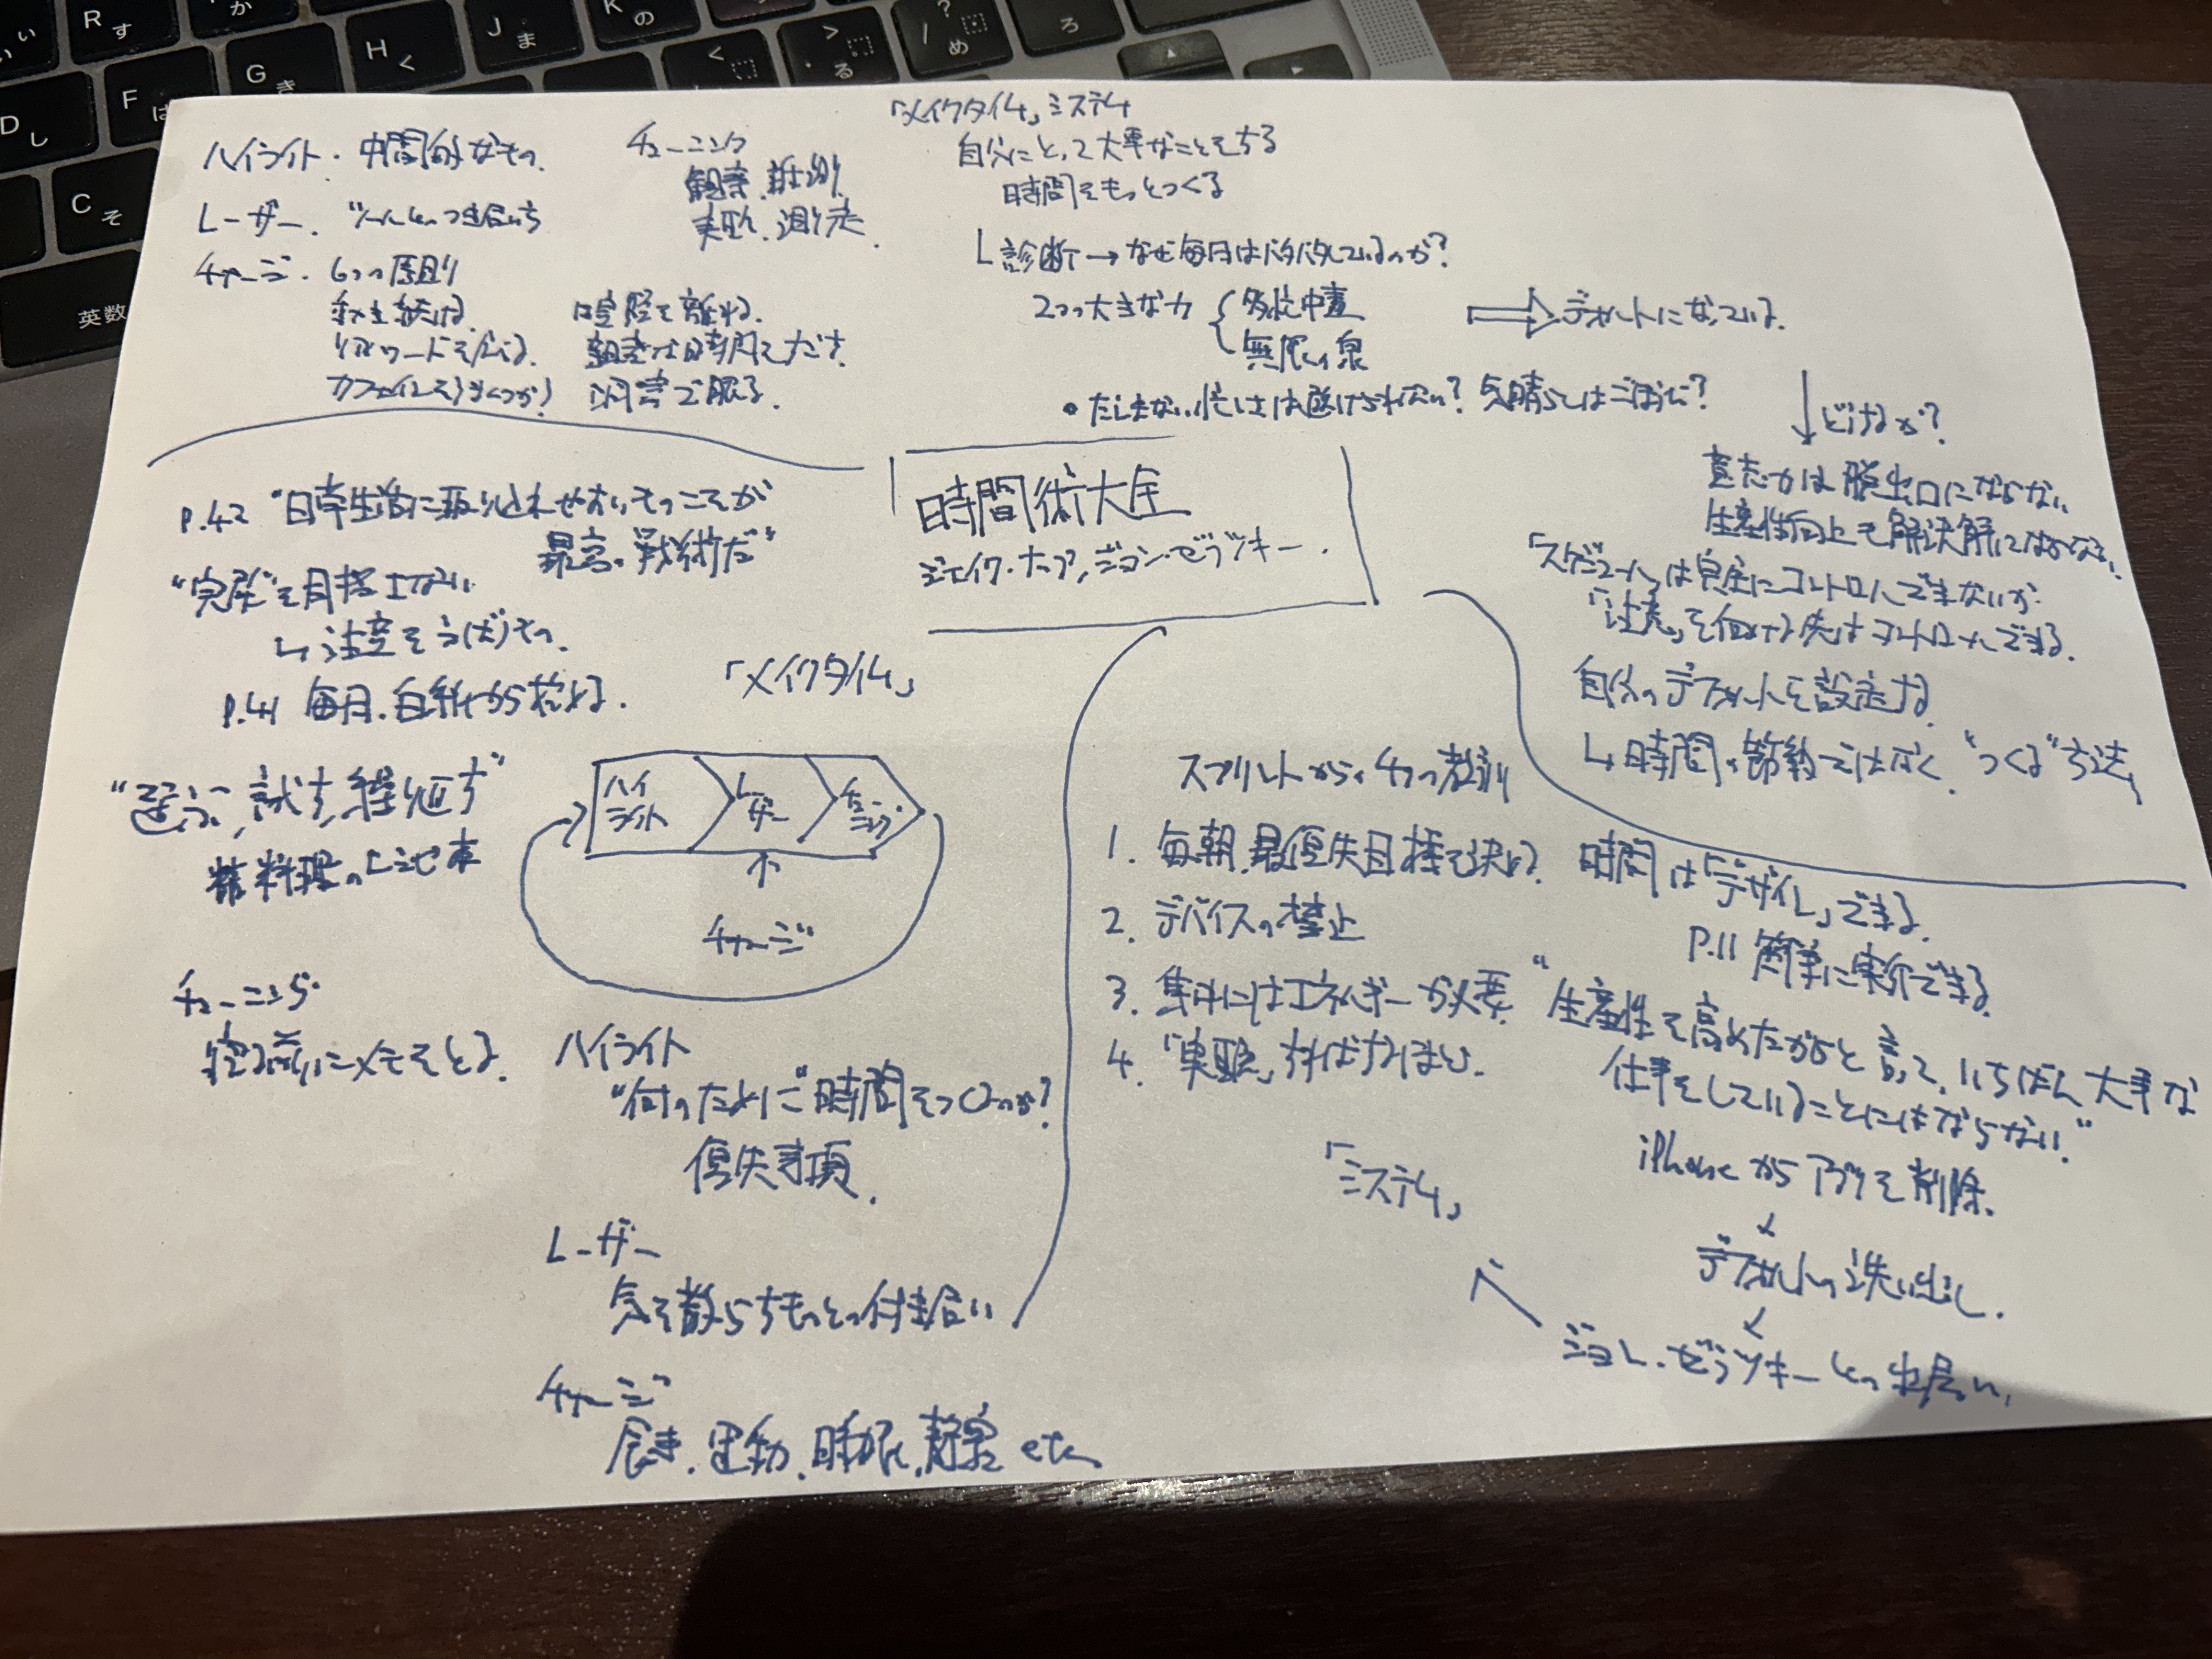 R す
か
K の
J ま
H く
G き
F は
D し
C そ
英数
< 
> る
? / め
ろ
「メイクタイム」システム
自分にとって大事なことをする
時間をもっとつくる
診断→なぜ毎日はバタバタしているのか?
2つの大きな力
多忙中毒
無限の泉
デフォルトになっている.
・たしまない忙しさは避けられない? 気晴らしはごほうび?
どけるか?
意志力は脱出口にならない
生産性向上も解決解にはならない.
「スケジュール」は完全にコントロールできないが
「注意」を向ける先はコントロールできる.
自分のデフォルトを設定する.
↳時間の節約ではなく "つくる"方法
ハイライト. 中間的なもの.
レーザー. ツールとのつき合い方
チャージ. 6つの原則
動き続ける.
リアルフードを食べる.
カフェインをうまくつかう
喧騒を離れる.
親密な時間をだす.
洞窟で眠る.
チューニング
観察.推測
実験.測定.
時間術大全
ジェイク・ナップ,ジョン・ゼラツキー.
P.42 "日常生活に取り入れやすいものこそが
最高の戦術だ"
"完璧"を目指さない
↳注意をうばうもの.
P.41 毎月.白紙から始める.
"選ぶ,試す,繰り返す"
料理のレシピ本
「メイクタイム」
ハイライト
レーザー
チューニング
↑
チャージ
チューニング
メモをとる.
ハイライト
"何のために"時間をつくるのか?
優先事項.
レーザー
気を散らすものとの付き合い
チャージ
食事.運動.睡眠.静寂 etc
スプリントからの4つの教訓
1. 毎朝.最優先目標を決める
2. デバイスの禁止
3. 集中にはエネルギーが必要
4. 「実験」すればするほど.
時間は「デザイン」できる.
P.11 簡単に実行できる.
"生産性を高めたからと言って、いちばん大事な
仕事をしていることにはならない"
iPhoneからアプリを削除.
デフォルトの洗い出し.
ジョン・ゼラツキーとの出会い.
「システム」